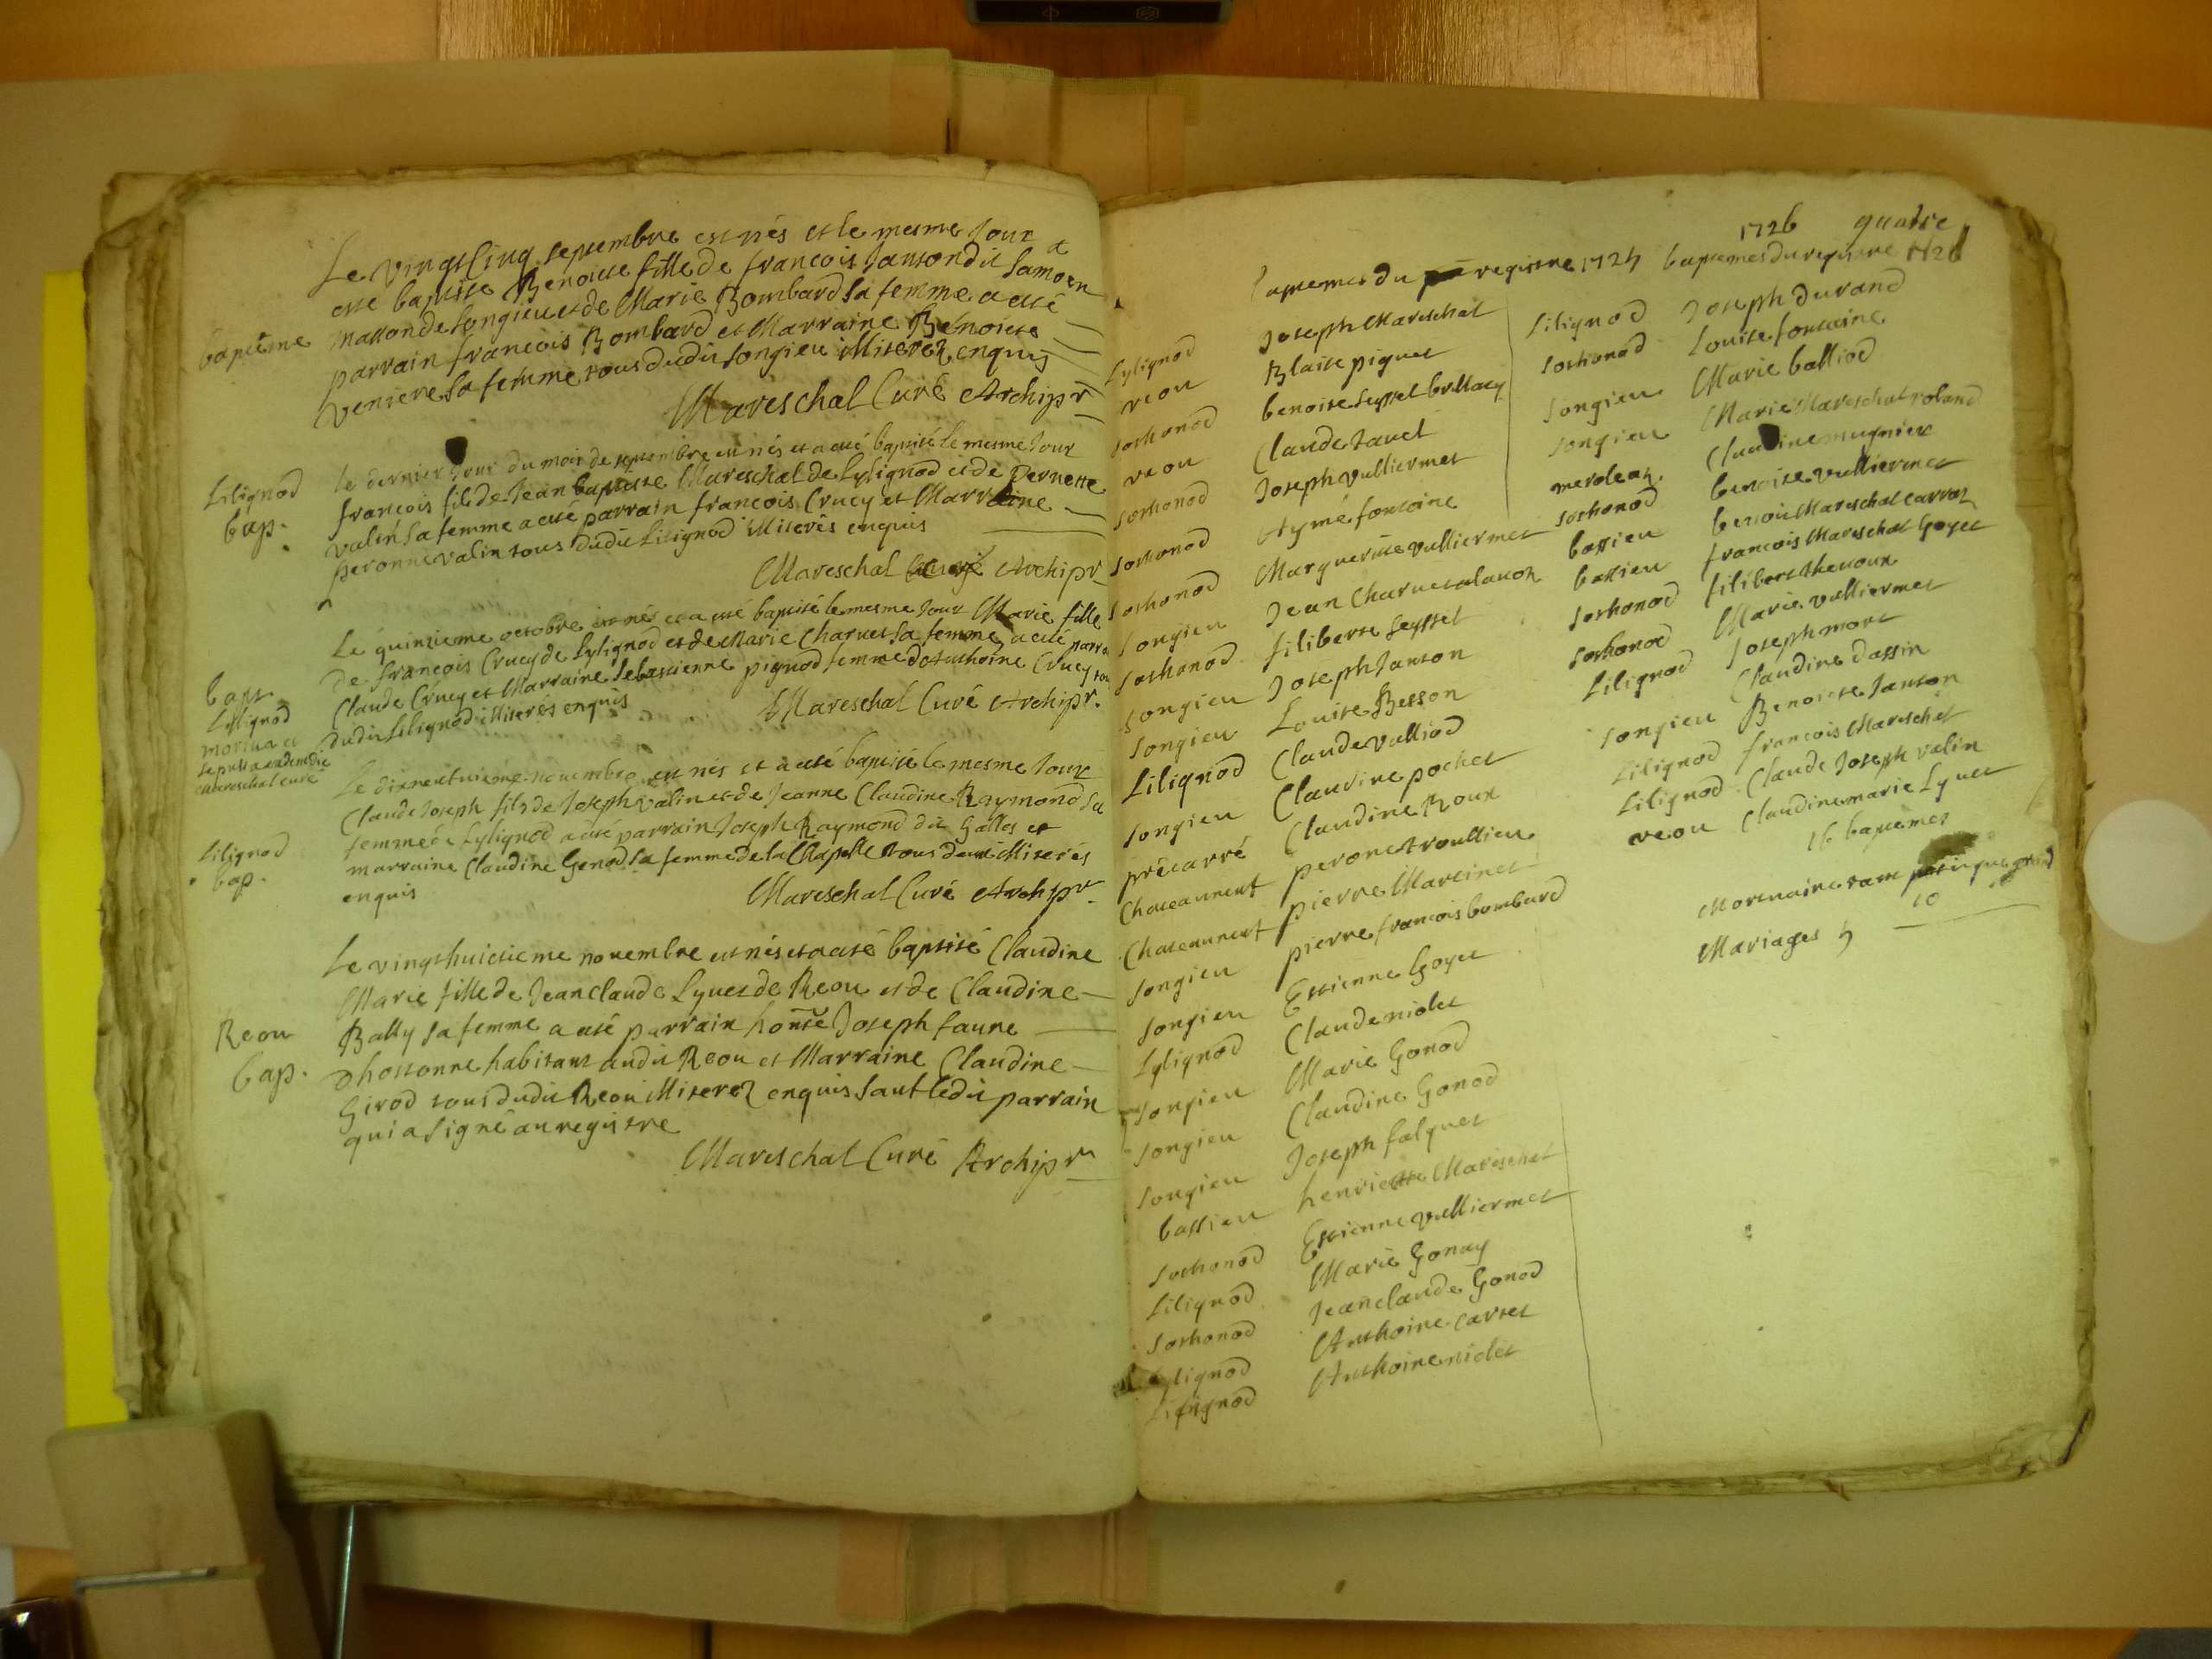 Le vingt Cinq septembre est nés et le mesme Jour a
esté baptisé Benoite fille de francois Janson dit Samoen
baptême masson de songieu et de Marie Bombard sa femme a esté
parrain francois Bombard et Marraine Bénoite
veniere sa femme tous dudit songieu illiterez enquis
Mareschal Curé Archipr
Lilignod
bap.
le dernier Jour du mois de septembre est nés et a esté baptisé le mesme Jour
francois fils de Jean baptiste Mareschal de Lylignod et de Pernette
valin sa femme a esté parrain francois Crucy et Marraine
peronne valin tous dudit Lilignod illiterés enquis
Mareschal Curé Archipr
bapt
Lylignod
mortua et
sepulta eadem die
Mareschal curé
Le quinzieme octobre est nés et a esté baptisé le mesme Jour Marie fille
de francois Crucy de Lylignod et de Marie Charvet sa femme a esté parra
Claude Crucy et Marraine sebastienne pignod femme d'Anthoine Crucy tou
dudit Lilignod illiterés enquis
Mareschal Curé Archipr.
Lilignod
bap.
Le dixneufvieme novembre est nés et a esté baptisé le mesme Jour
Claude Joseph fils de Joseph valin et de Jeanne Claudine Raymond sa
femme de Lylignod a esté parrain Joseph Raymond dit Galles et
marraine Claudine Genod sa femme de la Chapelle tous deux illiterés
enquis
Mareschal Curé Archipr
Reou
bap.
Le vingt huictieme novembre est nés et a esté baptisé Claudine
Marie fille de Jean claude Lyvet de Reou et de Claudine
Bally sa femme a esté parrain honste Joseph faure
d'hostonne habitant audit Reou et Marraine Claudine
Girod tous dudit Reou illiterez enquis sauf ledit parrain
qui a signé au registre
Mareschal Curé Archipr
1726 quatre
baptemes du registre 1725
Lylignod Joseph Mareschal
reou Blaise piquet
sothonod benoite seyssel
reou Claude Javet
sothonod Joseph vulliermet
sothonod Aymé fontaine
sothonod Marguerite vulliermet
songieu Jean Charvet
sothonod filiberte seyssel
songieu Joseph Janson
songieu Louise Besson
Lilignod Claude valliod
songieu Claudine pochet
précarré Claudine Roux
Chateauneuf perone troullieu
Chateauneuf pierre Martinet
songieu pierre francois bombard
songieu Estienne Goyet
Lylignod Claude niolet
songieu Marie Gonod
songieu Claudine Gonod
songieu Joseph falquet
bassieu henriette Mareschal
sothonod Estienne vulliermet
Lilignod Marie Gonay
sothonod Jean claude Gonod
Lylignod Anthoine carret
Lilignod Anthoine niolet
baptemes du registre 1726
Lilignod Joseph durand
sothonod Louise fontaine
songieu Marie balliod
songieu Marie Mareschal roland
meroleaz Claudine mugnier
sothonod benoite vulliermet
bassieu benoit Mareschal carroz
bassieu francois Mareschal Goyet
sothonod filibert thevoux
sothonod Marie vulliermet
Lilignod Joseph mort
Claudine dassin
songieu Benoiste Janson
Lilignod francois Mareschal
Lilignod Claude Joseph valin
reou Claudine marie Lyvet
16 baptemes
Mortuaires tant petits que grands
10
Mariages 5